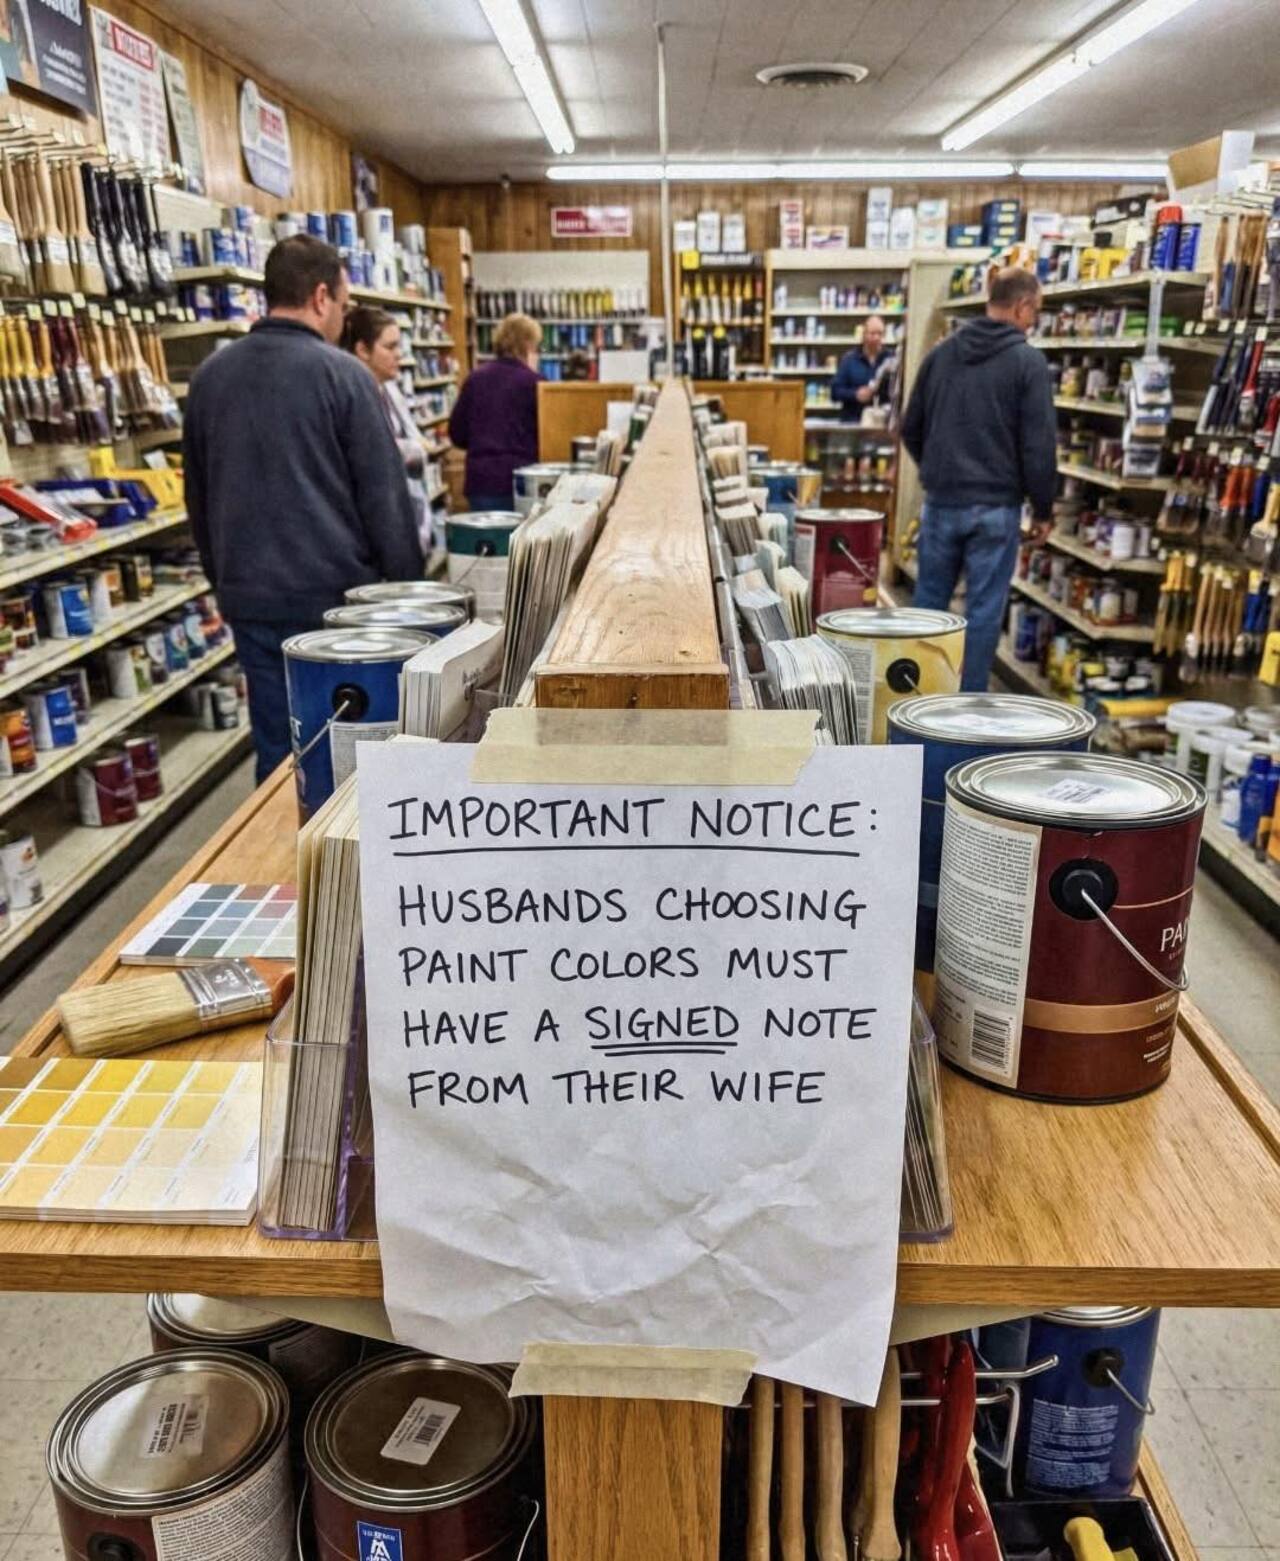 IMPORTANT NOTICE:
HUSBANDS CHOOSING
PAINT COLORS MUST
HAVE A SIGNED NOTE
FROM THEIR WIFE